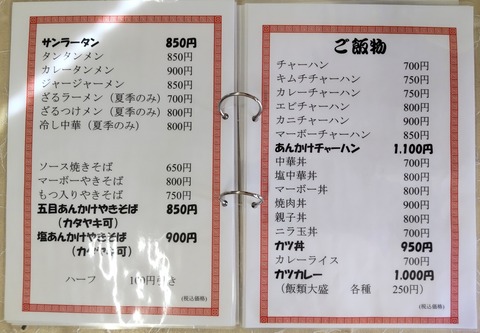 サンラータン 850円
タンタンメン 850円
カレータンメン 900円
ジャージャーメン 850円
ざるラーメン（夏季のみ）700円
ざるつけメン（夏季のみ）800円
冷し中華（夏季のみ） 800円
ソース焼きそば 650円
マーボーやきそば 800円
もつ入りやきそば 750円
五目あんかけやきそば 850円
（カタヤキ可）
塩あんかけやきそば 900円
（カタヤキ可）
ハーフ 100円引き
(税込価格)
ご飯物
チャーハン 700円
キムチチャーハン 750円
カレーチャーハン 750円
エビチャーハン 800円
カニチャーハン 900円
マーボーチャーハン 850円
あんかけチャーハン 1.100円
中華丼 700円
塩中華丼 800円
マーボー丼 800円
焼肉丼 900円
親子丼 800円
ニラ玉丼 700円
カツ丼 950円
カレーライス 700円
カツカレー 1.000円
（飯類大盛 各種 250円）
(税込価格)